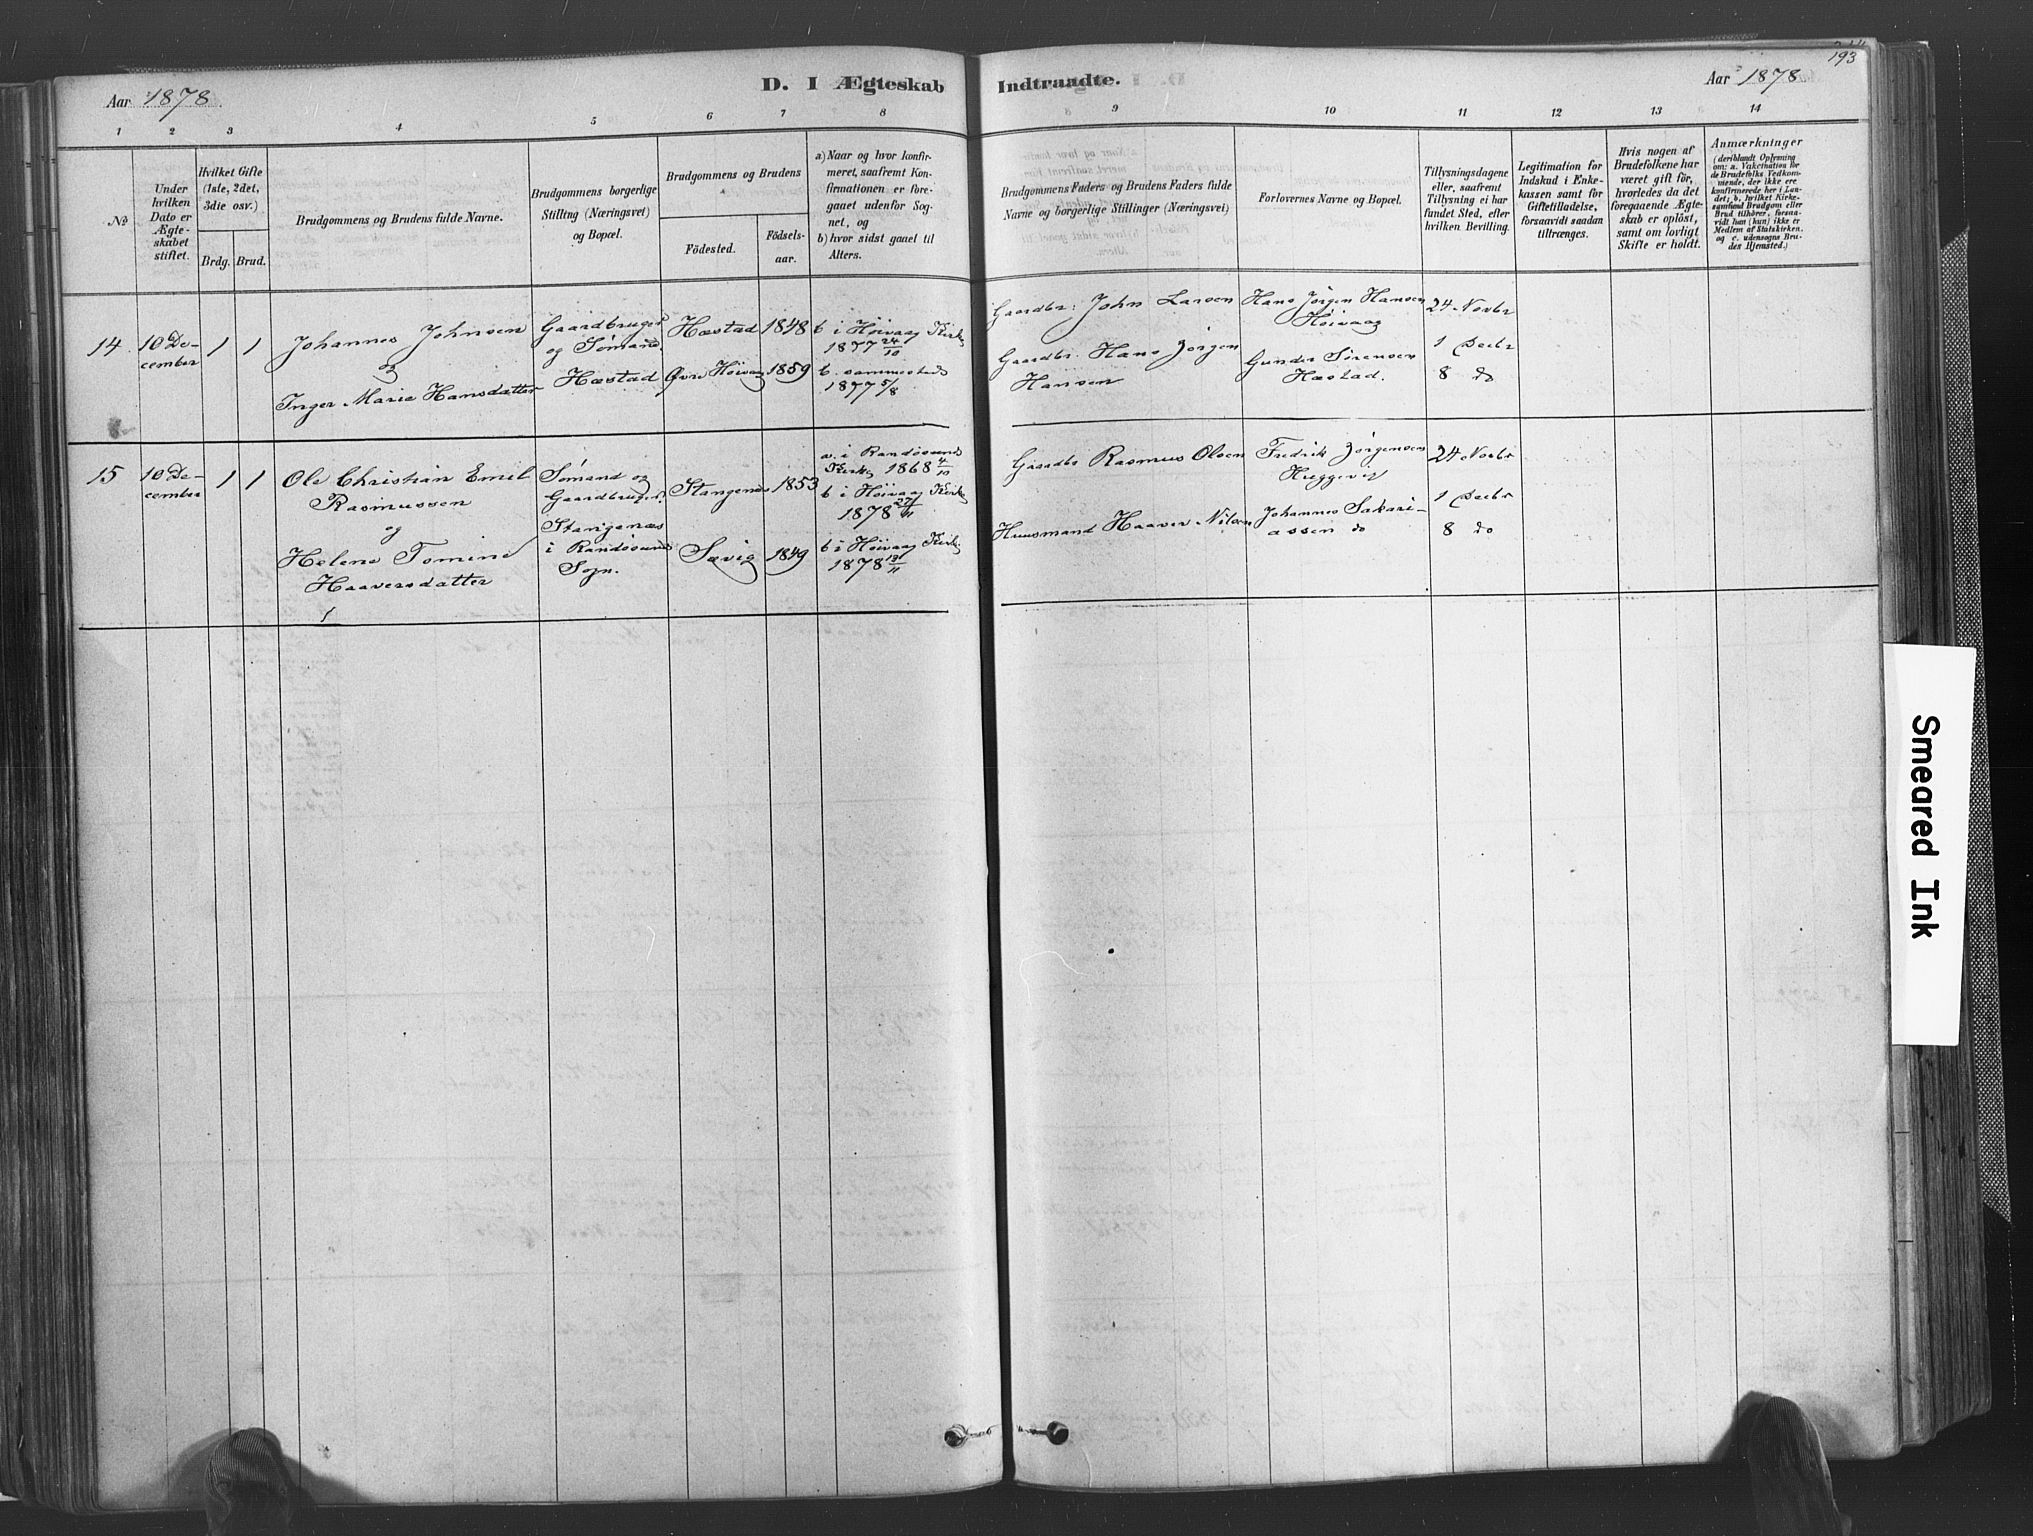 193
Aar 1878.
D. I Ægteskab Indtraadte.
Aar 1878.
1 2 3 4 5 6 7 8 9 10 11 12 13 14
No
Under
hvilken
Dato er
Ægte-
skabet
stiftet.
Hvilket Gifte
(1ste, 2det,
3die osv.)
Brdg. Brud.
Brudgommens og Brudens fulde Navne.
Brudgommens borgerlige
Stilling (Næringsvei)
og Bopæl.
Brudgommens og Brudens
Födested.
Födsels-
aar.
a) Naar og hvor konfir-
meret, saafremt Kon-
firmationen er fore-
gaaet udenfor Sog-
net, og
b) hvor sidst gaaet til
Alters.
Brudgommens Faders og Brudens Faders fulde
Navne og borgerlige Stillinger (Næringsvei)
Forlovernes Navne og Bopæl.
Tillysningsdagene
eller, saafremt
Tillysning ei har
fundet Sted, efter
hvilken Bevilling.
Legitimation for
Indskud i Enke-
kassen samt for
Giftetilladelse,
forsaavidt saadan
tiltrænges.
Hvis nogen af
Brudefolkene har
været gift för,
hvorledes da det
foregaaende Ægte-
skab er oplöst,
samt om lovligt
Skifte er holdt.
Anmærkninger
(deriblandt Oplysning
om: a. Vakcination for
de Brudefolks Vedkom-
mende, der ikke ere
konfirmerede her i Lan-
det; b. hvilket Kirke-
samfund Brudgom eller
Brud tilhörer, forsaa-
vidt han (hun) ikke er
Medlem af Statskirken,
og c. udensogns Bru-
des Hjemsted.)
14
10 De-
cember
1 1
Johannes Johnsen
og
Inger Marie Hansdatter
Gaardbruger
og Sømand
Hæstad
Hæstad 1848
Øvre Höivaag 1859
b i Höivaag Kirke
1877 24/10
b. sammesteds
1877 5/8
Gaardbr: John Larsen
Gaardbr: Hans Jörgen
Hansen
Hans Jörgen Hansen
Höivaag
Gunder Sörensen
Hæstad.
24 Novbr
1 Decbr
8 do
15
10 De-
cember
1 1
Ole Christian Emil
Rasmussen
og
Helene Tomine
Haaversdatter
1
Sømand og
Gaardbruger.
Stangenæs
i Randösund
Sogn.
Stangenes 1853
Sævig 1849
a. i Randösund
Kirke 1868 4/10
b i Höivaag Kirke
1878 27/11
b i Höivaag Kirke.
1878 13/11
Gaardbr Rasmus Olsen
Huusmand Haaver Nilsen
Fredrik Jörgensen
Hæggevig
Johannes Sakari-
assen do
24 Novbr
1 Decbr
8 do
Smeared Ink